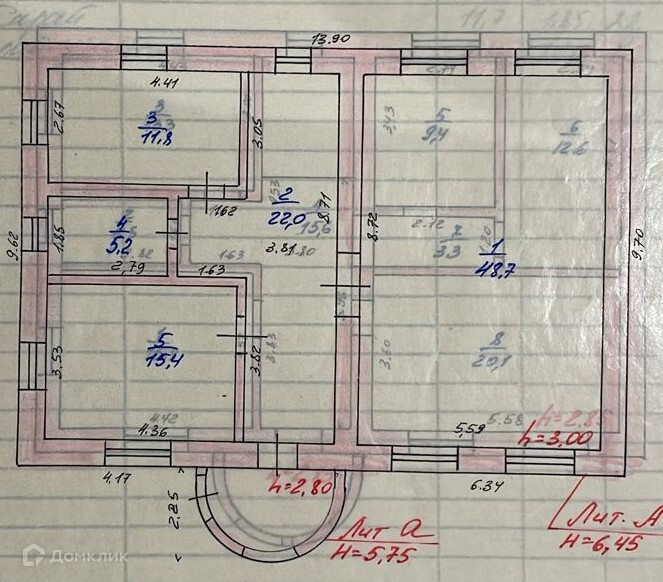 13.90
4.41
2.67
3
11,8
3.05
1.62
2
22,0
8.71
3.81
9.62
1.85
4
5.2
2,79
1.63
1.63
1.80
15,6
8.72
3,43
5
9,4
6
12.6
2.12
7
3.3
1
48,7
9,70
3,53
5
15,4
3.82
3.83
3,60
8
20,1
4.12
4.36
5,59
5.58
H=2,85
h=3,00
4.17
h=2,80
6.34
2.85
Лит а
H=5,75
Лит. А
H=6,45
11,7
Домклик